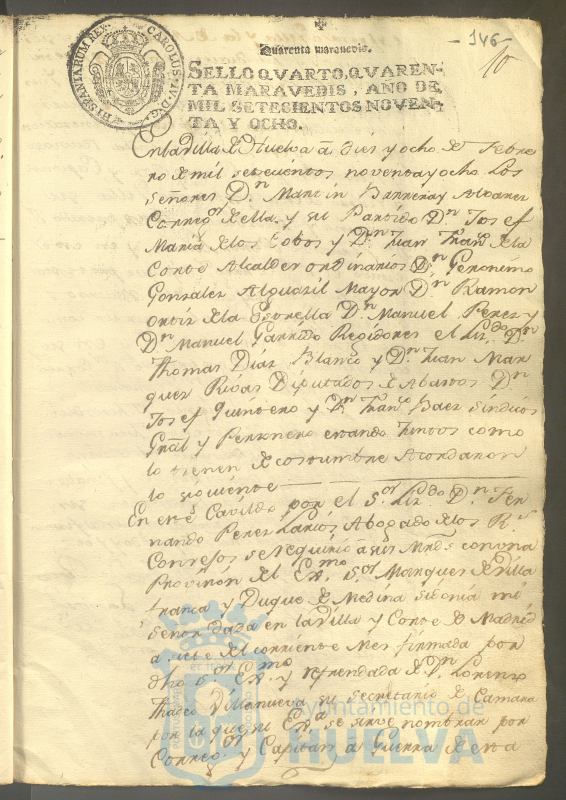 -146-
10
Quarenta maravedis.
SELLO QVARTO, QVAREN-
TA MARAVEDIS, AÑO DE
MIL SETECIENTOS NOVEN-
TA Y OCHO.
CAROLUS IV D G HISPANIARUM REX
En la villa de Huelva a dies y ocho de Febre
ro de mil setecientos noventa y ocho Los
Señores Dn. Martin Barrera y Alvares
Correxor. de ella y su Partido Dn. Josef
Maria de los Cobos y Dn. Juan Franco. de la
Corte Alcaldes ordinarios Dn. Geronimo
Gonzalez Alguasil Mayor Dn. Ramon
Ortiz de la Estrella Dn. Manuel Perez y
Dn. Manuel Garrido Regidores el Lizdo. Dn.
Thomas Diaz Blanco y Dn. Juan Mar
quez Rivas Diputados de Abastos Dn.
Josef Quintero y Dn. Franco. Baez Sindicos
Gral y Personero estando Juntos como
lo tienen de costumbre Acordaron
lo siguiente
En este Cavildo por el Sor. Lizdo. Dn. Fer
nando Perez Larios Abogado de los Rs.
Consejos se requirio a sus Mrds. con una
Provision del Exmo. Sor. Marques de Villa
franca y Duque de Medina Sidonia mi
Señor dada en la Villa y Corte de Madrid
a siete del corriente Mes firmada por
dho Sor. Exmo. y refrendada de Dn. Lorenzo
Villanueva su Secretario de Camara
por la que su Exa. se sirve nombrar por
Corregor. y Capitan a Guerra de esta
Ayuntamiento de
HUELVA